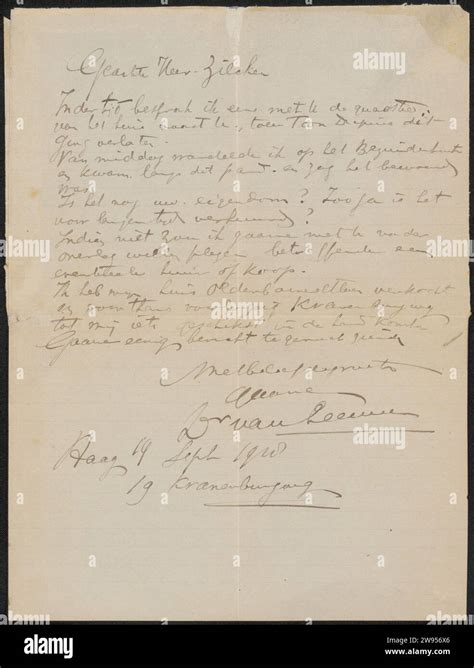 Geachte Heer Zilcken
Indertijd besprak ik eens met U de quaestie
van het huis naast U, toen Tom Dupuis dit
ging verlaten.
Van middag wandelde ik op het Bezuidenhout
en kwam langs dit pand en zag het bewoond
was.
Is het nog uw eigendom? Zoo ja is het
voor langen tijd verhuurd?
Indien niet zou ik gaarne met U nader
overleg willen plegen betreffende een
eventueele huur of koop.
Ik heb mijn huis Oldenbarneveltlaan verkocht
en woon thans Kranenburgweg
tot mij iets geschikts in de hand komt
Gaarne eenig bericht tegemoet ziende
Met beleefde groeten
Dr van Leeuwen
Haag 19 Sept 1918
19 Kranenburgweg
alamy
Image ID: 2W956X6
www.alamy.com